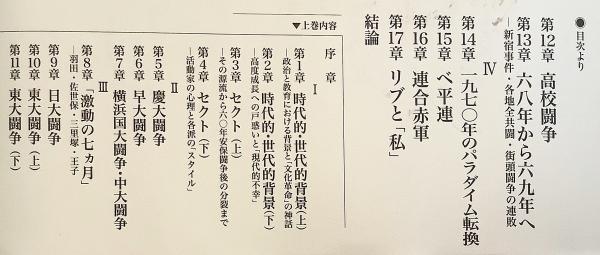 ●目次より
第12章 高校闘争
第13章 六八年から六九年へ
―新宿事件・各地全共闘・街頭闘争の連敗
Ⅳ
第14章 一九七〇年のパラダイム転換
第15章 ベ平連
第16章 連合赤軍
第17章 リブと「私」
結論
▼上巻内容
序章
Ⅰ
第1章 時代的・世代的背景(上)
―政治と教育における背景と「文化革命」の神話
第2章 時代的・世代的背景(下)
―高度成長への戸惑いと「現代的不幸」
第3章 セクト(上)
―その源流から六〇年安保闘争後の分裂まで
第4章 セクト(下)
―活動家の心理と各派の「スタイル」
Ⅱ
第5章 慶大闘争
第6章 早大闘争
第7章 横浜国大闘争・中大闘争
Ⅲ
第8章 「激動の七ヵ月」
―羽田・佐世保・三里塚・王子
第9章 日大闘争
第10章 東大闘争(上)
第11章 東大闘争(下)